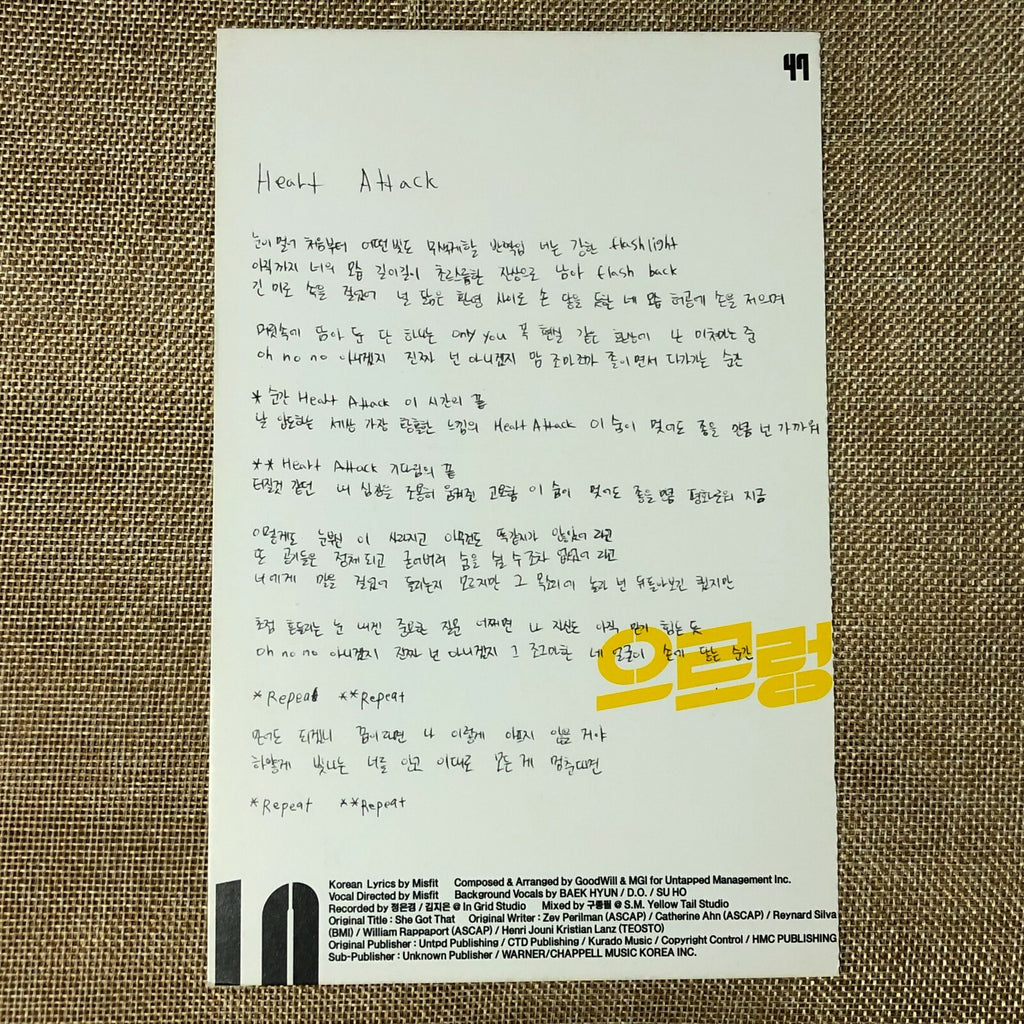 47
Heart Attack
눈이 멀어 처음부터 어떤 빛도 무색케할 반짝임 너는 강한 flashlight
아직까지 너의 모습 길이길이 흐르스름한 잔상으로 남아 flash back
긴 미로 속을 걸었어 널 닮은 환영 사이로 손 닿을 듯한 네 모습 허공에 손을 저으며
머릿속에 담아 둔 단 하나는 only you 꼭 현실 같은 환상에 난 미쳐가는 중
oh no no 아니겠지 진짜 넌 아니겠지 맘 조마조마 졸이면서 다가가는 순간
* 순간 Heart Attack 이 시간의 끝
날 압도하는 세상 가장 황홀한 느낌의 Heart Attack 이 숨이 멎어도 좋을 만큼 넌 가까워
** Heart Attack 기다림의 끝
터질것 같던 내 심장을 조용히 움켜쥔 고요함 이 숨이 멎어도 좋을 만큼 평화로워 지금
이렇게도 눈부신 이 사라지고 아무것도 똑같지가 않았어 라고
또 공기들은 정체되고 굳어버려 숨을 쉴 수조차 없었어 라고
너에게 말을 걸었어 들리는지 모르지만 그 목소리에 놀라 넌 뒤돌아보긴 했지만
초점 흔들리는 눈 내겐 충분한 질문 어쩌면 나 자신도 아직 믿기 힘든 듯
Oh no no 아니겠지 진짜 넌 아니겠지 그 조그마한 네 얼굴이 손에 닿는 순간
으르렁
*Repeat **Repeat
믿어도 되겠니 꿈이라면 나 이렇게 아프지 않을 거야
하얗게 빛나는 너를 안고 이대로 모든 게 멈춘대면
*Repeat **Repeat
10
Korean Lyrics by Misfit Composed & Arranged by GoodWill & MGI for Untapped Management Inc.
Vocal Directed by Misfit Background Vocals by BAEK HYUN / D.O. / SU HO
Recorded by 정은경 / 김지은 @ In Grid Studio Mixed by 구종필 @ S.M. Yellow Tail Studio
Original Title : She Got That Original Writer : Zev Perilman (ASCAP) / Catherine Ahn (ASCAP) / Reynard Silva
(BMI) / William Rappaport (ASCAP) / Henri Jouni Kristian Lanz (TEOSTO)
Original Publisher : Untpd Publishing / CTD Publishing / Kurado Music / Copyright Control / HMC PUBLISHING
Sub-Publisher : Unknown Publisher / WARNER/CHAPPELL MUSIC KOREA INC.